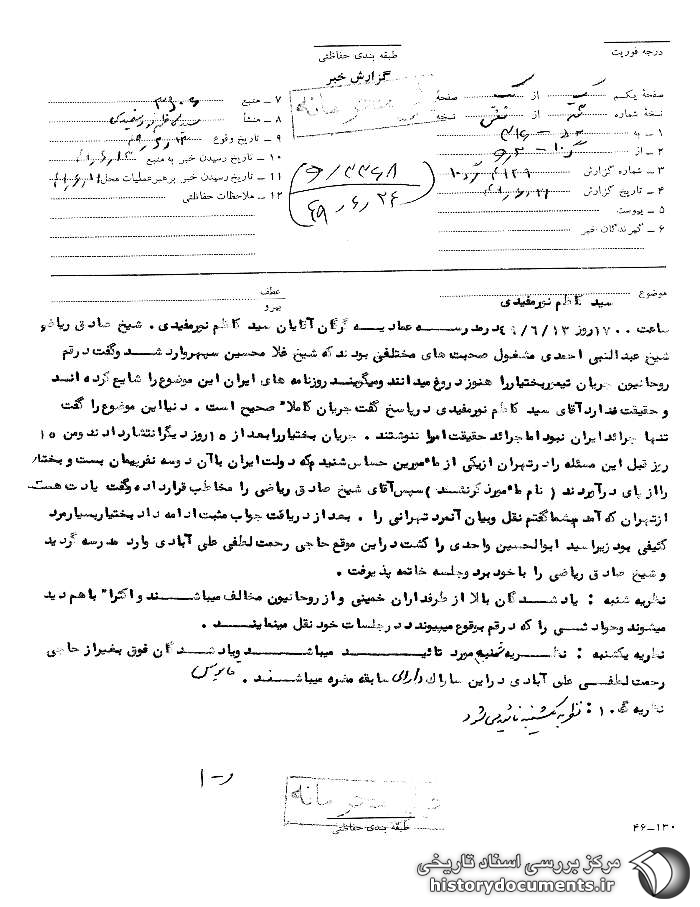 درجه فوریت
طبقه بندی حفاظتی
گزارش خبر
خیلی محرمانه
صفحهٔ یکم از یک صفحه
نسخهٔ شماره از نسخه
۱ ـ به ۳۱۲
۲ ـ از
۳ ـ شماره گزارش
۴ ـ تاریخ گزارش
۵ ـ پیوست
۶ ـ گیرندگان خبر
۷ ـ منبع
۸ ـ منشأ
۹ ـ تاریخ وقوع
۱۰ ـ تاریخ رسیدن خبر به منبع
۱۱ ـ تاریخ رسیدن خبر به رهبر عملیات محل
۱۲ ـ ملاحظات حفاظتی
۴۹٫۶٫۲۴
موضوع سید کاظم نورمفیدی
عطف
پیرو
ساعت ۱۷۰۰ روز ۴۹/۶/۱۳ در مدرسه عمادیه گرگان آقایان سید کاظم نورمفیدی . شیخ صادق ریاضی
شیخ عبدالنبی احمدی مشغول صحبت های مختلفی بودند که شیخ غلامحسین سپهر وارد شد و گفت در قم
روحانیون جریان تیمور بختیار را هنوز دروغ میدانند و میگویند روزنامه های ایران این موضوع را شایع کرده اند
و حقیقت ندارد آقای سید کاظم نورمفیدی در پاسخ گفت جریان کاملا" صحیح است . دنیا این موضوع را گفت
تنها جرائد ایران نبود اما جرائد حقیقت امر را ننوشتند . جریان بختیار را بعد از ۱۵ روز دیگر انتشار دادند و من ۱۵
روز قبل این مسئله را در تهران از یکی از مأمورین حساس شنیدم که دولت ایران با آن دو سه نفر پیمان بست و بختیار
را از پای درآوردند ( نام مأمور ذکر نشد ) سپس آقای شیخ صادق ریاضی را مخاطب قرار داده و گفت یادت هست
از تهران که آمدم بشما گفتم نقل و بیان آنمرد تهرانی را . بعد از دریافت جواب مثبت ادامه داد بختیار بسیار مرد
کثیفی بود زیرا سید ابوالحسین واحدی را کشت در این موقع حاجی رحمت لطفی علی آبادی وارد مدرسه گردید
و شیخ صادق ریاضی را با خود برد و جلسه خاتمه پذیرفت .
نظریه شنبه : یاد شدگان بالا از طرفداران خمینی و از روحانیون مخالف میباشند و اکثرا" با هم دید
میشوند و حوادثی را که در قم بوقوع میپیوندد در جلسات خود نقل مینمایند .
نظریه یکشنبه : نظریه شنبه مورد تائید میباشد و یاد شدگان فوق بغیر از حاجی
رحمت لطفی علی آبادی در این ساواک دارای سابقه مضره میباشند .
نظریه گ ۱۰ : نظریه یکشنبه تائید می شود
و-۱
خیلی محرمانه
طبقه بندی حفاظتی
۴۶-۱۳۰
مرکز بررسی اسناد تاریخی
historydocuments.ir